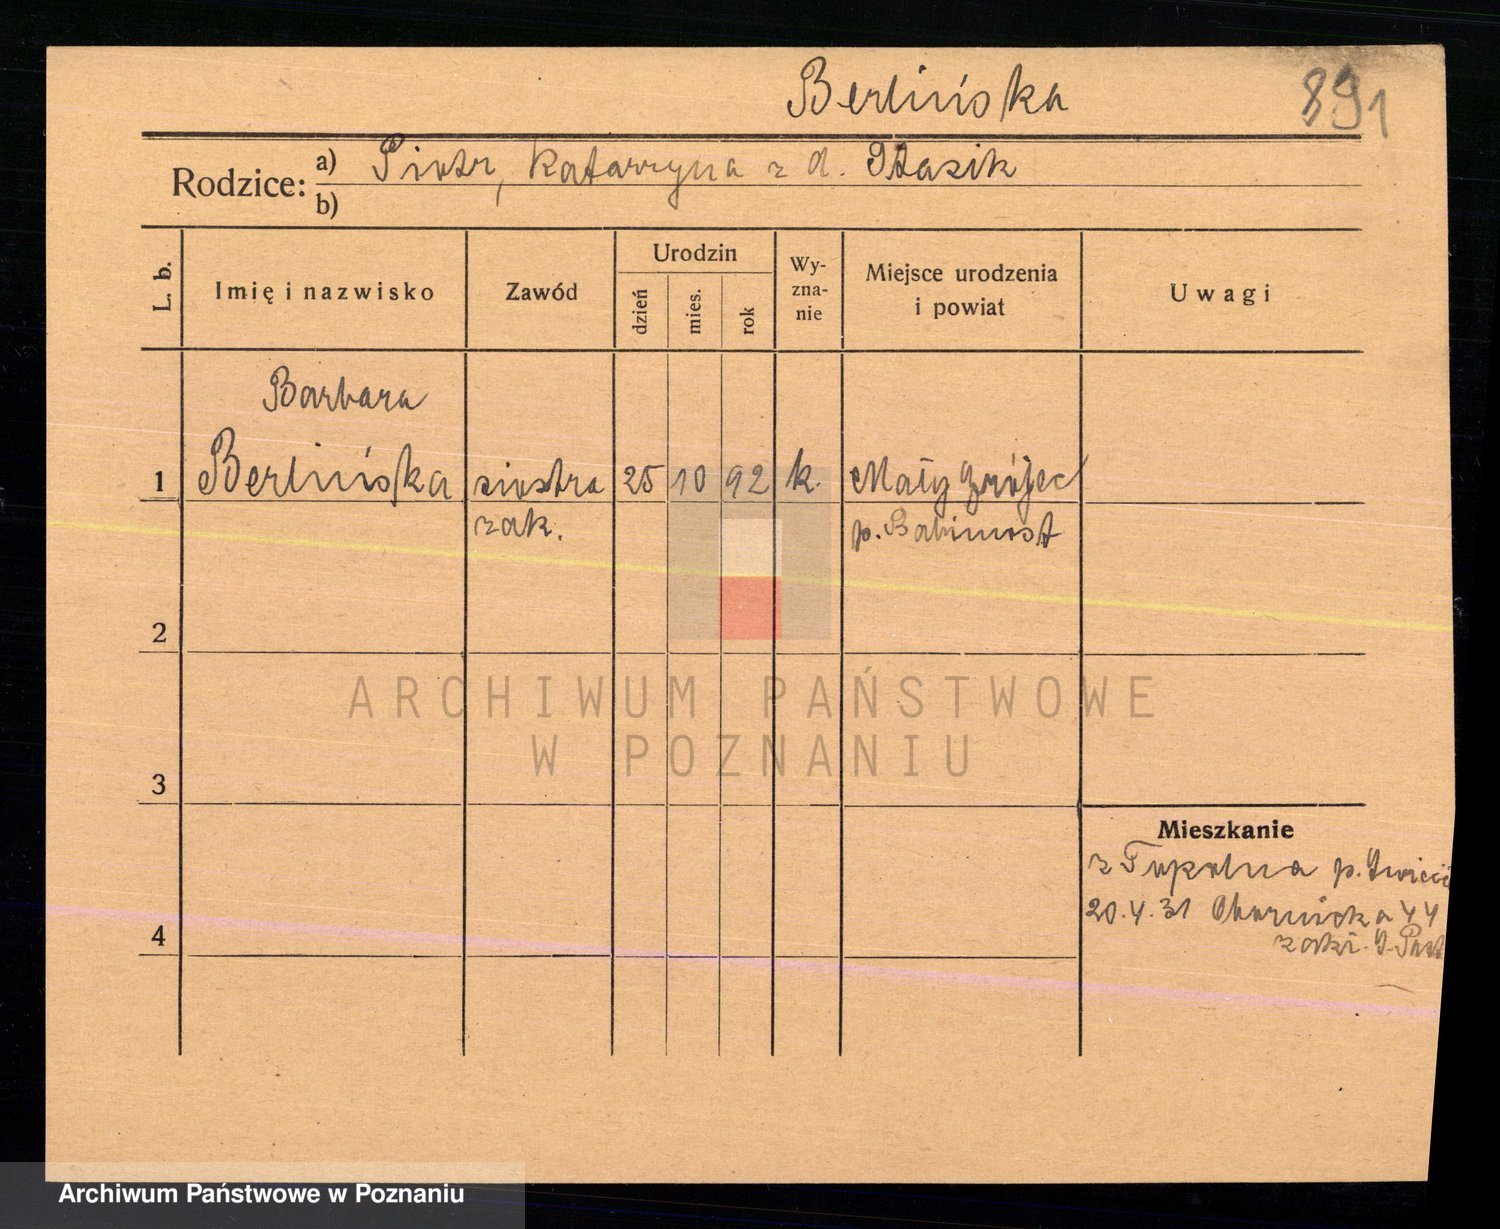 Berlińska
891
Rodzice: a) Piotr, Katarzyna z d. Stasik
b)
L. b.
Imię i nazwisko
Zawód
Urodzin
dzień
mies.
rok
Wy-
zna-
nie
Miejsce urodzenia
i powiat
Uwagi
Barbara
1 Berlińska siostra 25 10 92 k. Mały Grójec
zak. p. Babimost
2
3
4
Mieszkanie
z p.
20.4.31 44
ARCHIWUM PAŃSTWOWE
W POZNANIU
Archiwum Państwowe w Poznaniu